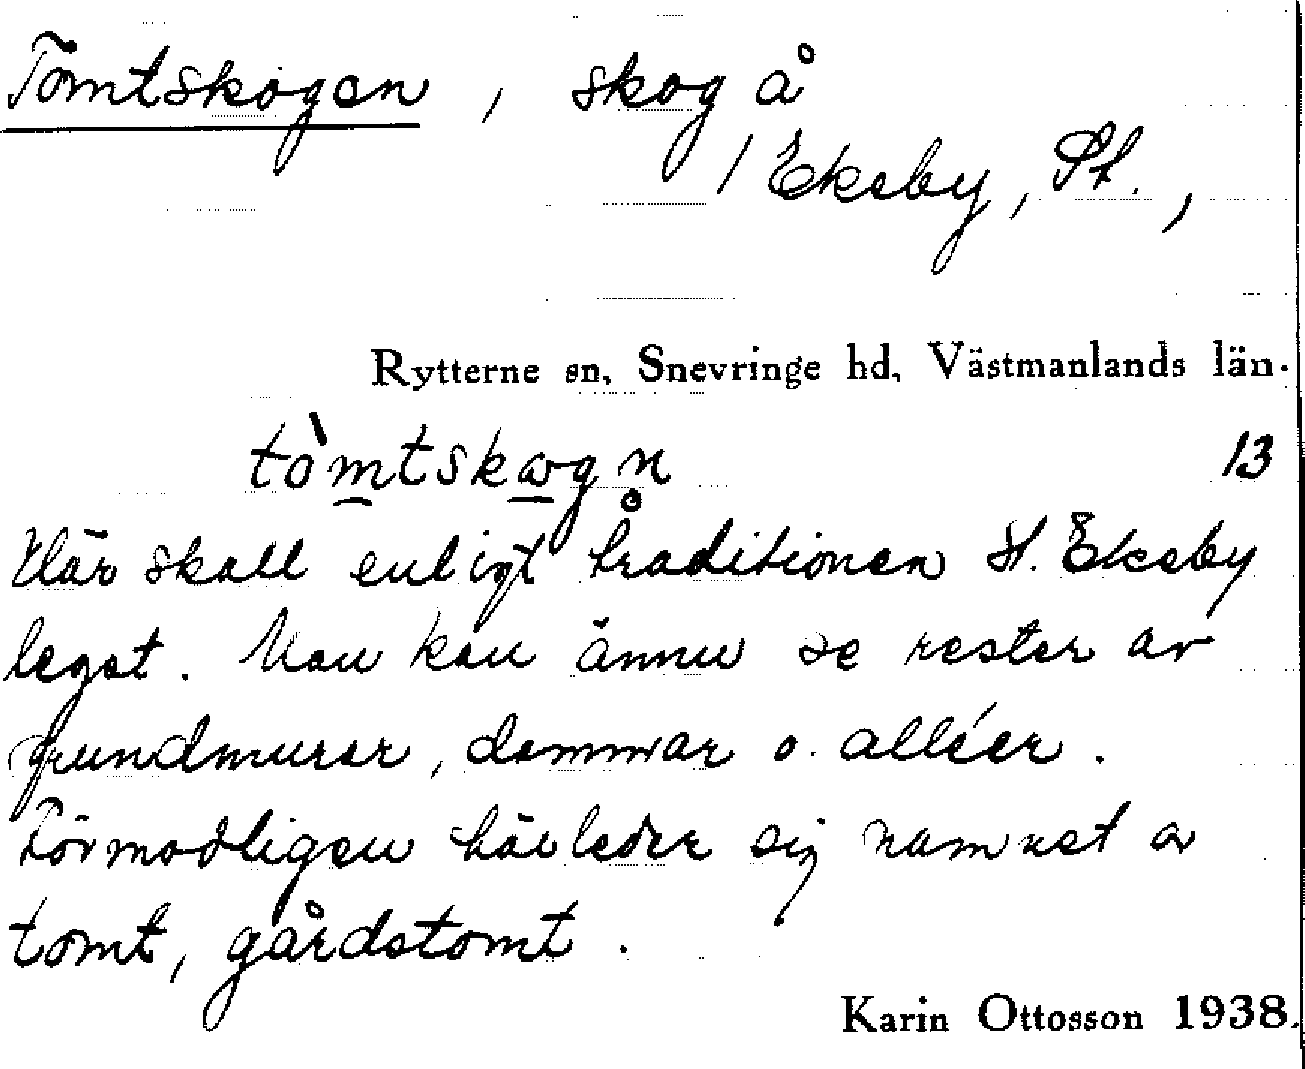 Tomtskogen, skog å
/ Ekeby, St.,
Rytterne sn, Snevringe hd, Västmanlands län.
13
Här skall enligt traditionen St. Ekeby
legat. Man kan ännu se rester av
grundmurar, dammar o. alléer.
Förmodligen härleder sig namnet av
tomt, gårdstomt.
Karin Ottosson 1938.